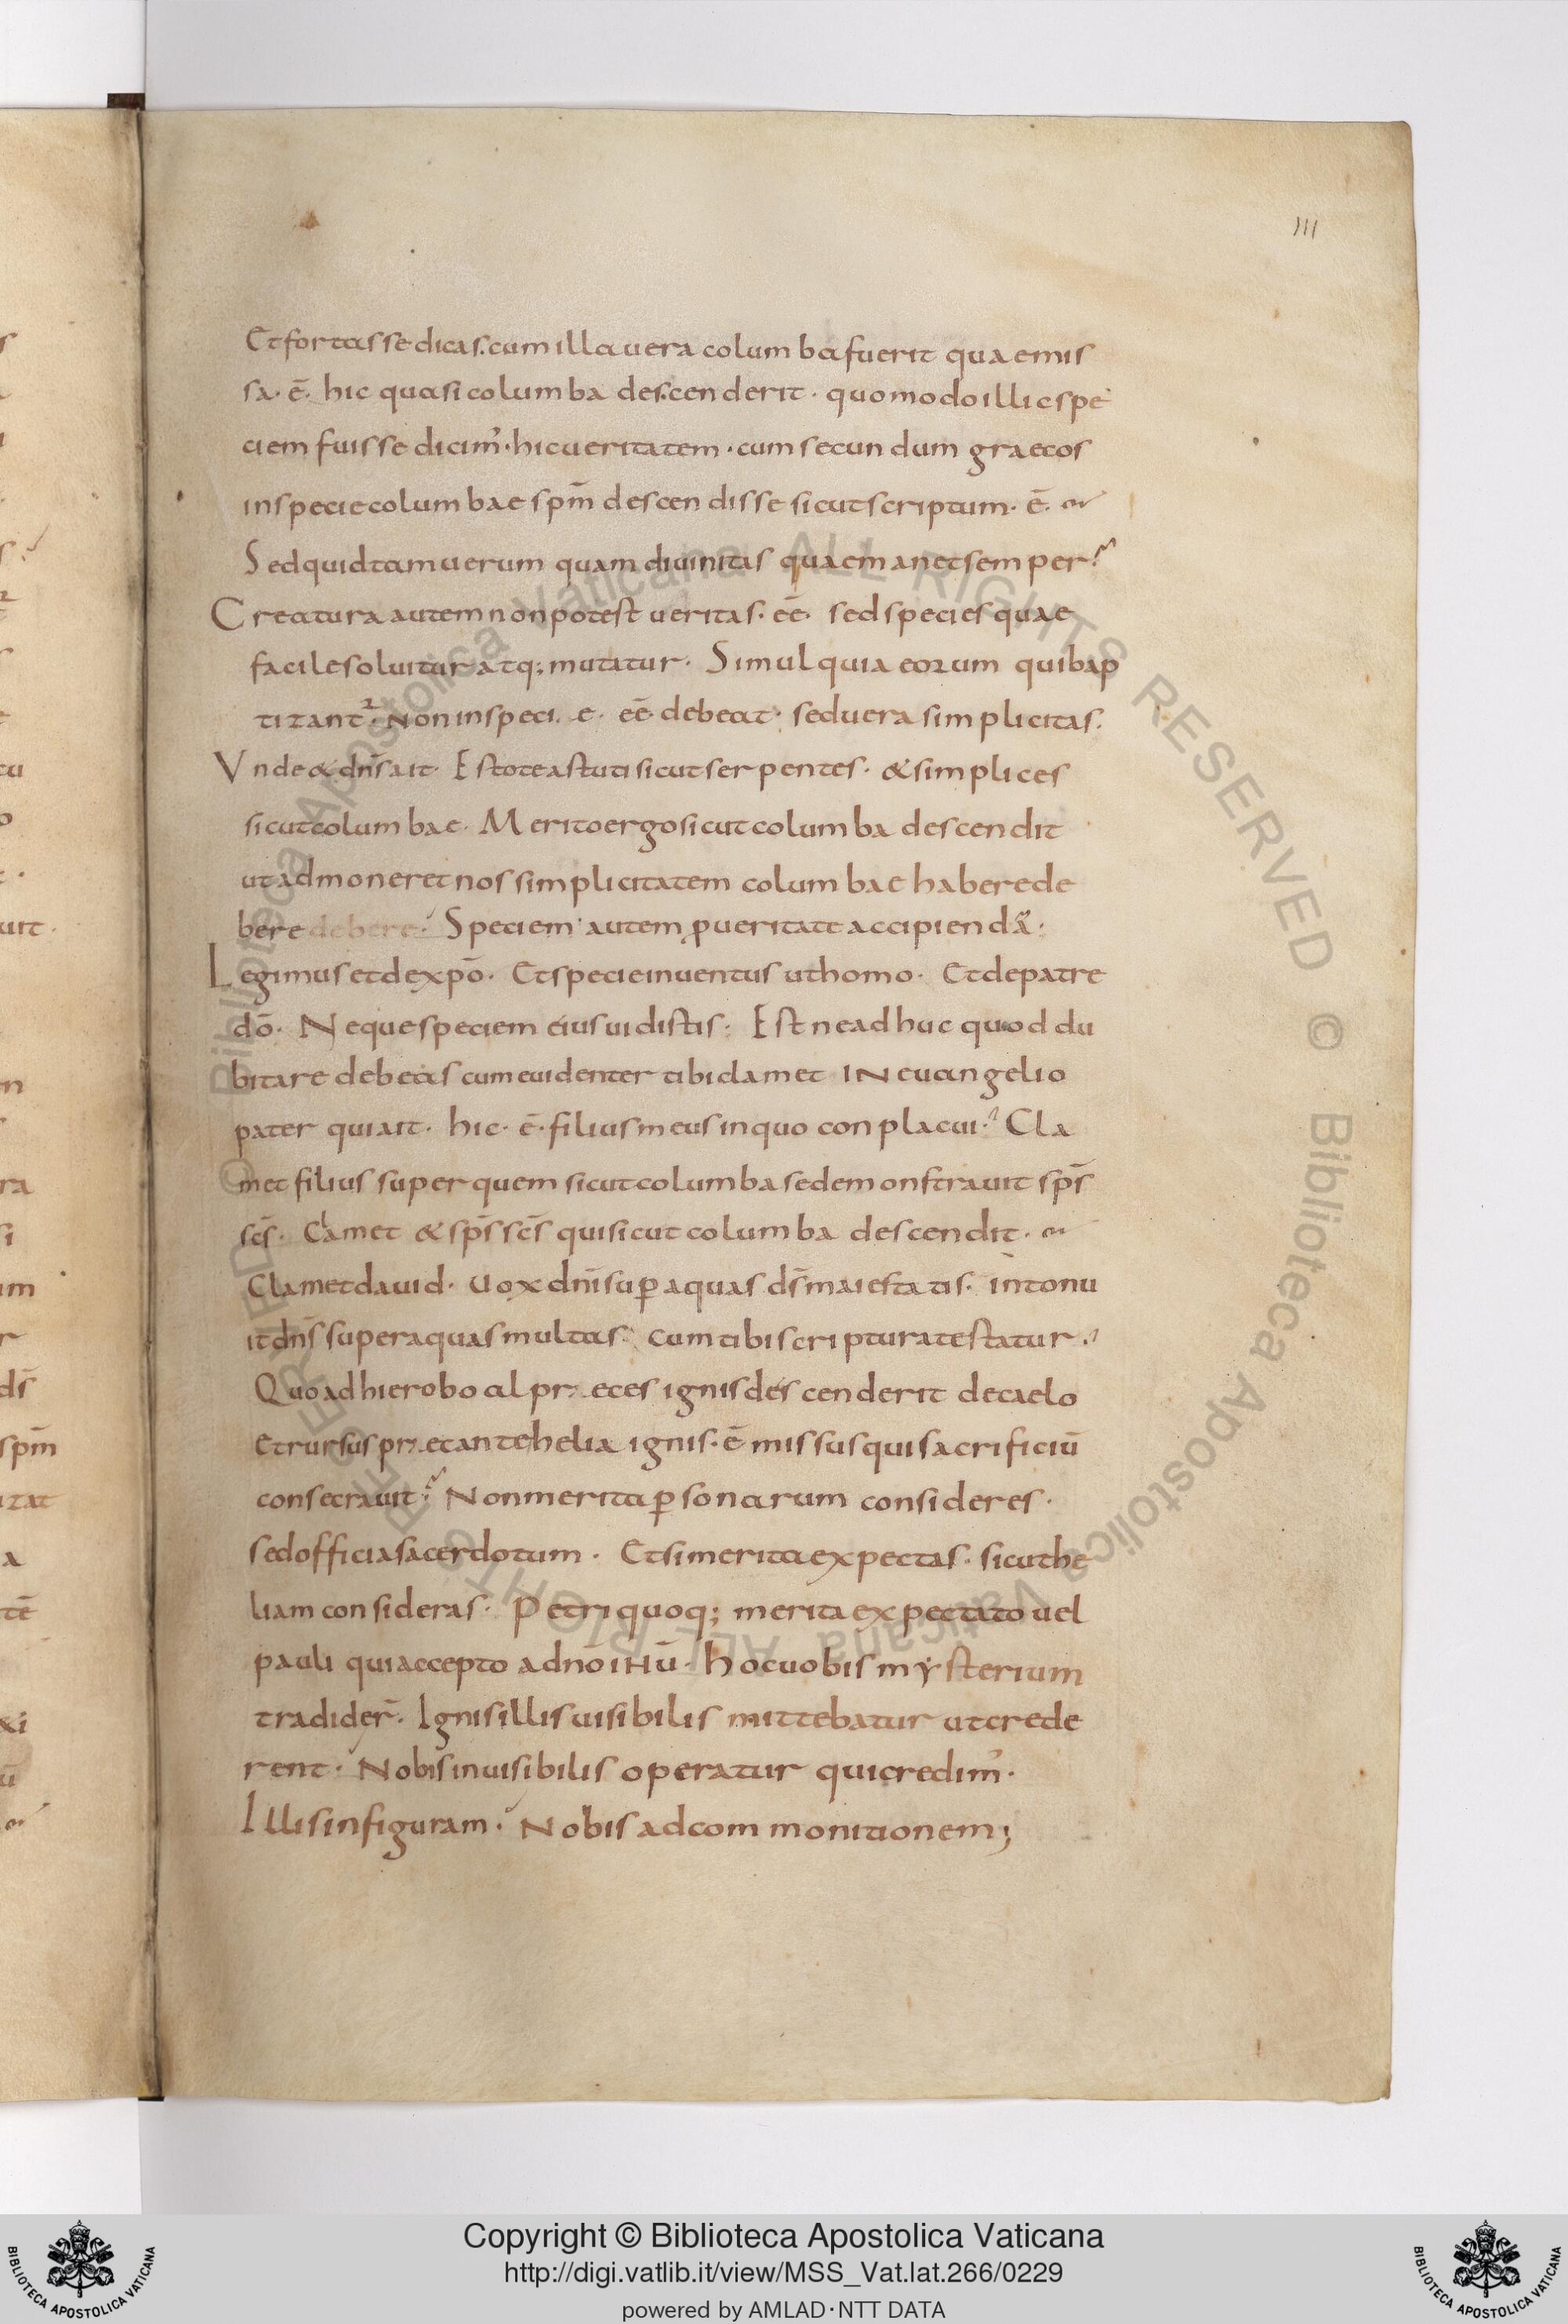 111
Et fortasse dicas. cum illa uera columba fuerit quae mis
sa· ē· hic quasi columba descenderit· quomodo illic spe
ciem fuisse dicim᾿· hic ueritatem· cum secundum graecos
in specie columbae sp̄m descendisse sicut scriptum· ē·
Sed quid tam uerum quam diuinitas quae manet semper?
Creatura autem non potest ueritas· eē· sed species quae
facile soluitur atq; mutatur· Simul quia eorum qui bap
tizant᾿· Non in speci e· eē· debeat· sed uera simplicitas.
Vnde & dn̄s ait· Estote astuti sicut serpentes· & simplices
sicut columbae· Merito ergo sicut columba descendit
ut admoneret nos simplicitatem columbae habere de
bere debere· Speciem autem p̱ ueritate accipiendā·
Legimus et de xp̄o· Et specie inuentus ut homo· Et de patre
dō· Neque speciem eius uidistis· Estne adhuc quod du
bitare debeas cum euidenter tibi clamet IN euangelio
pater qui ait· hic· ē· filius meus in quo conplacui· Cla
met filius super quem sicut columba se demonstrauit sp̄s
sc̄s· Clamet & sp̄s sc̄s qui sicut columba descendit·
Clamet dauid· Uox dn̄i sup̱ aquas ds̄ maiestatis· intonu
it dn̄s super aquas multas· Cum tibi scriptura testatur·
Quo ad hieroboal præces ignis descenderit de caelo
et rursus præcante helia ignis· ē missus qui sacrificiū
consecrauit? Non merita p̱sonarum consideres·
sed officia sacerdotum· Et si merita expectas· sicut he
liam consideras· Petri quoq; merita expectato uel
pauli qui accepto a dnō iHū· hoc uobis mysterium
tradider̄· Ignis illis uisibilis mittebatur ut crede
rent· Nobis inuisibilis operatur qui credim᾿·
Illis in figuram· Nobis ad commonitionem;
Copyright © Biblioteca Apostolica Vaticana
http://digi.vatlib.it/view/MSS_Vat.lat.266/0229
powered by AMLAD·NTT DATA
BIBLIOTECA APOSTOLICA VATICANA
BIBLIOTECA APOSTOLICA VATICANA
© Biblioteca Apostolica Vaticana ALL RIGHTS RESERVED © Biblioteca Apostolica Vaticana ALL RIGHTS RESERVED